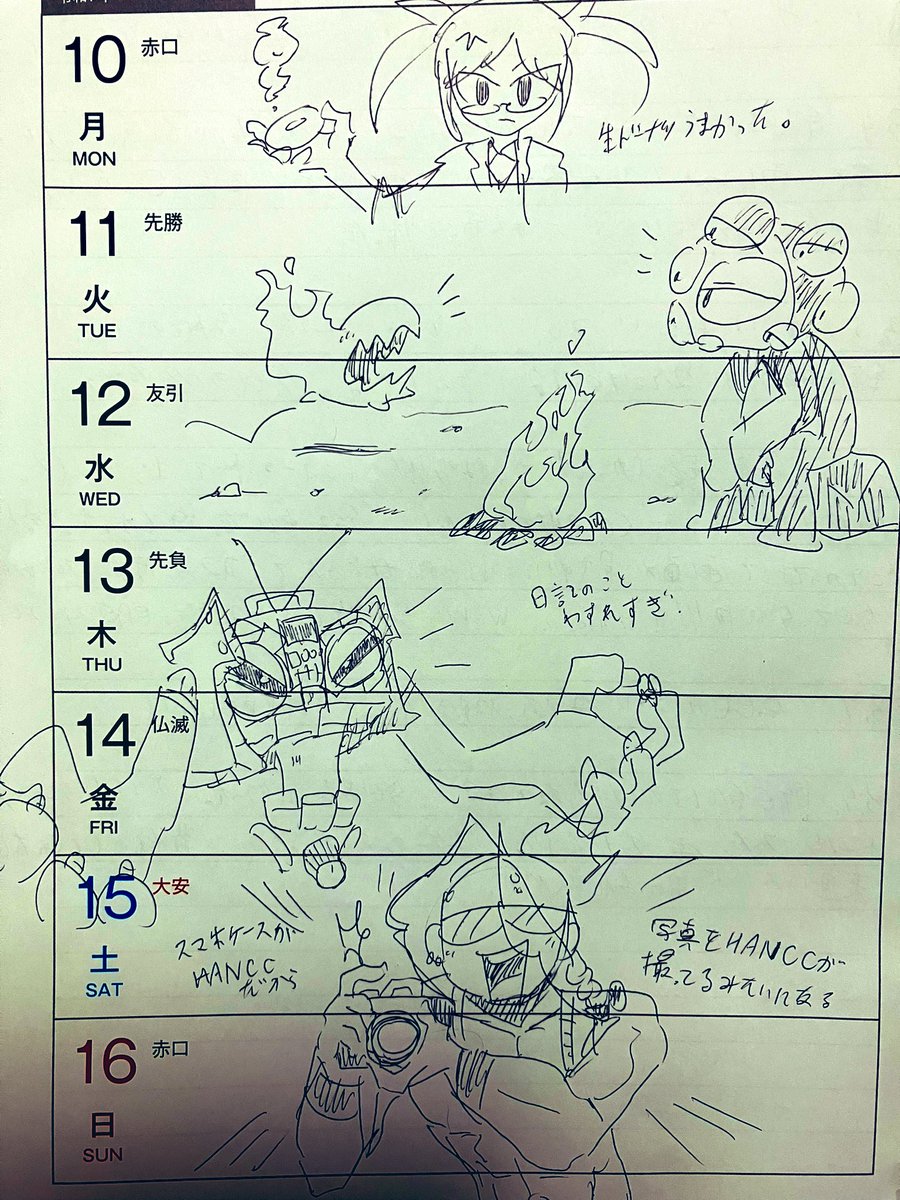 10 赤口
月
MON
生ドーナツうまかった。
11 先勝
火
TUE
12 友引
水
WED
13 先負
木
THU
日記のこと
わすれすぎ.
14 仏滅
金
FRI
15 大安
土
SAT
スマホケースが
HANCC
だから
写真をHANCCが
撮ってるみたいになる
16 赤口
日
SUN